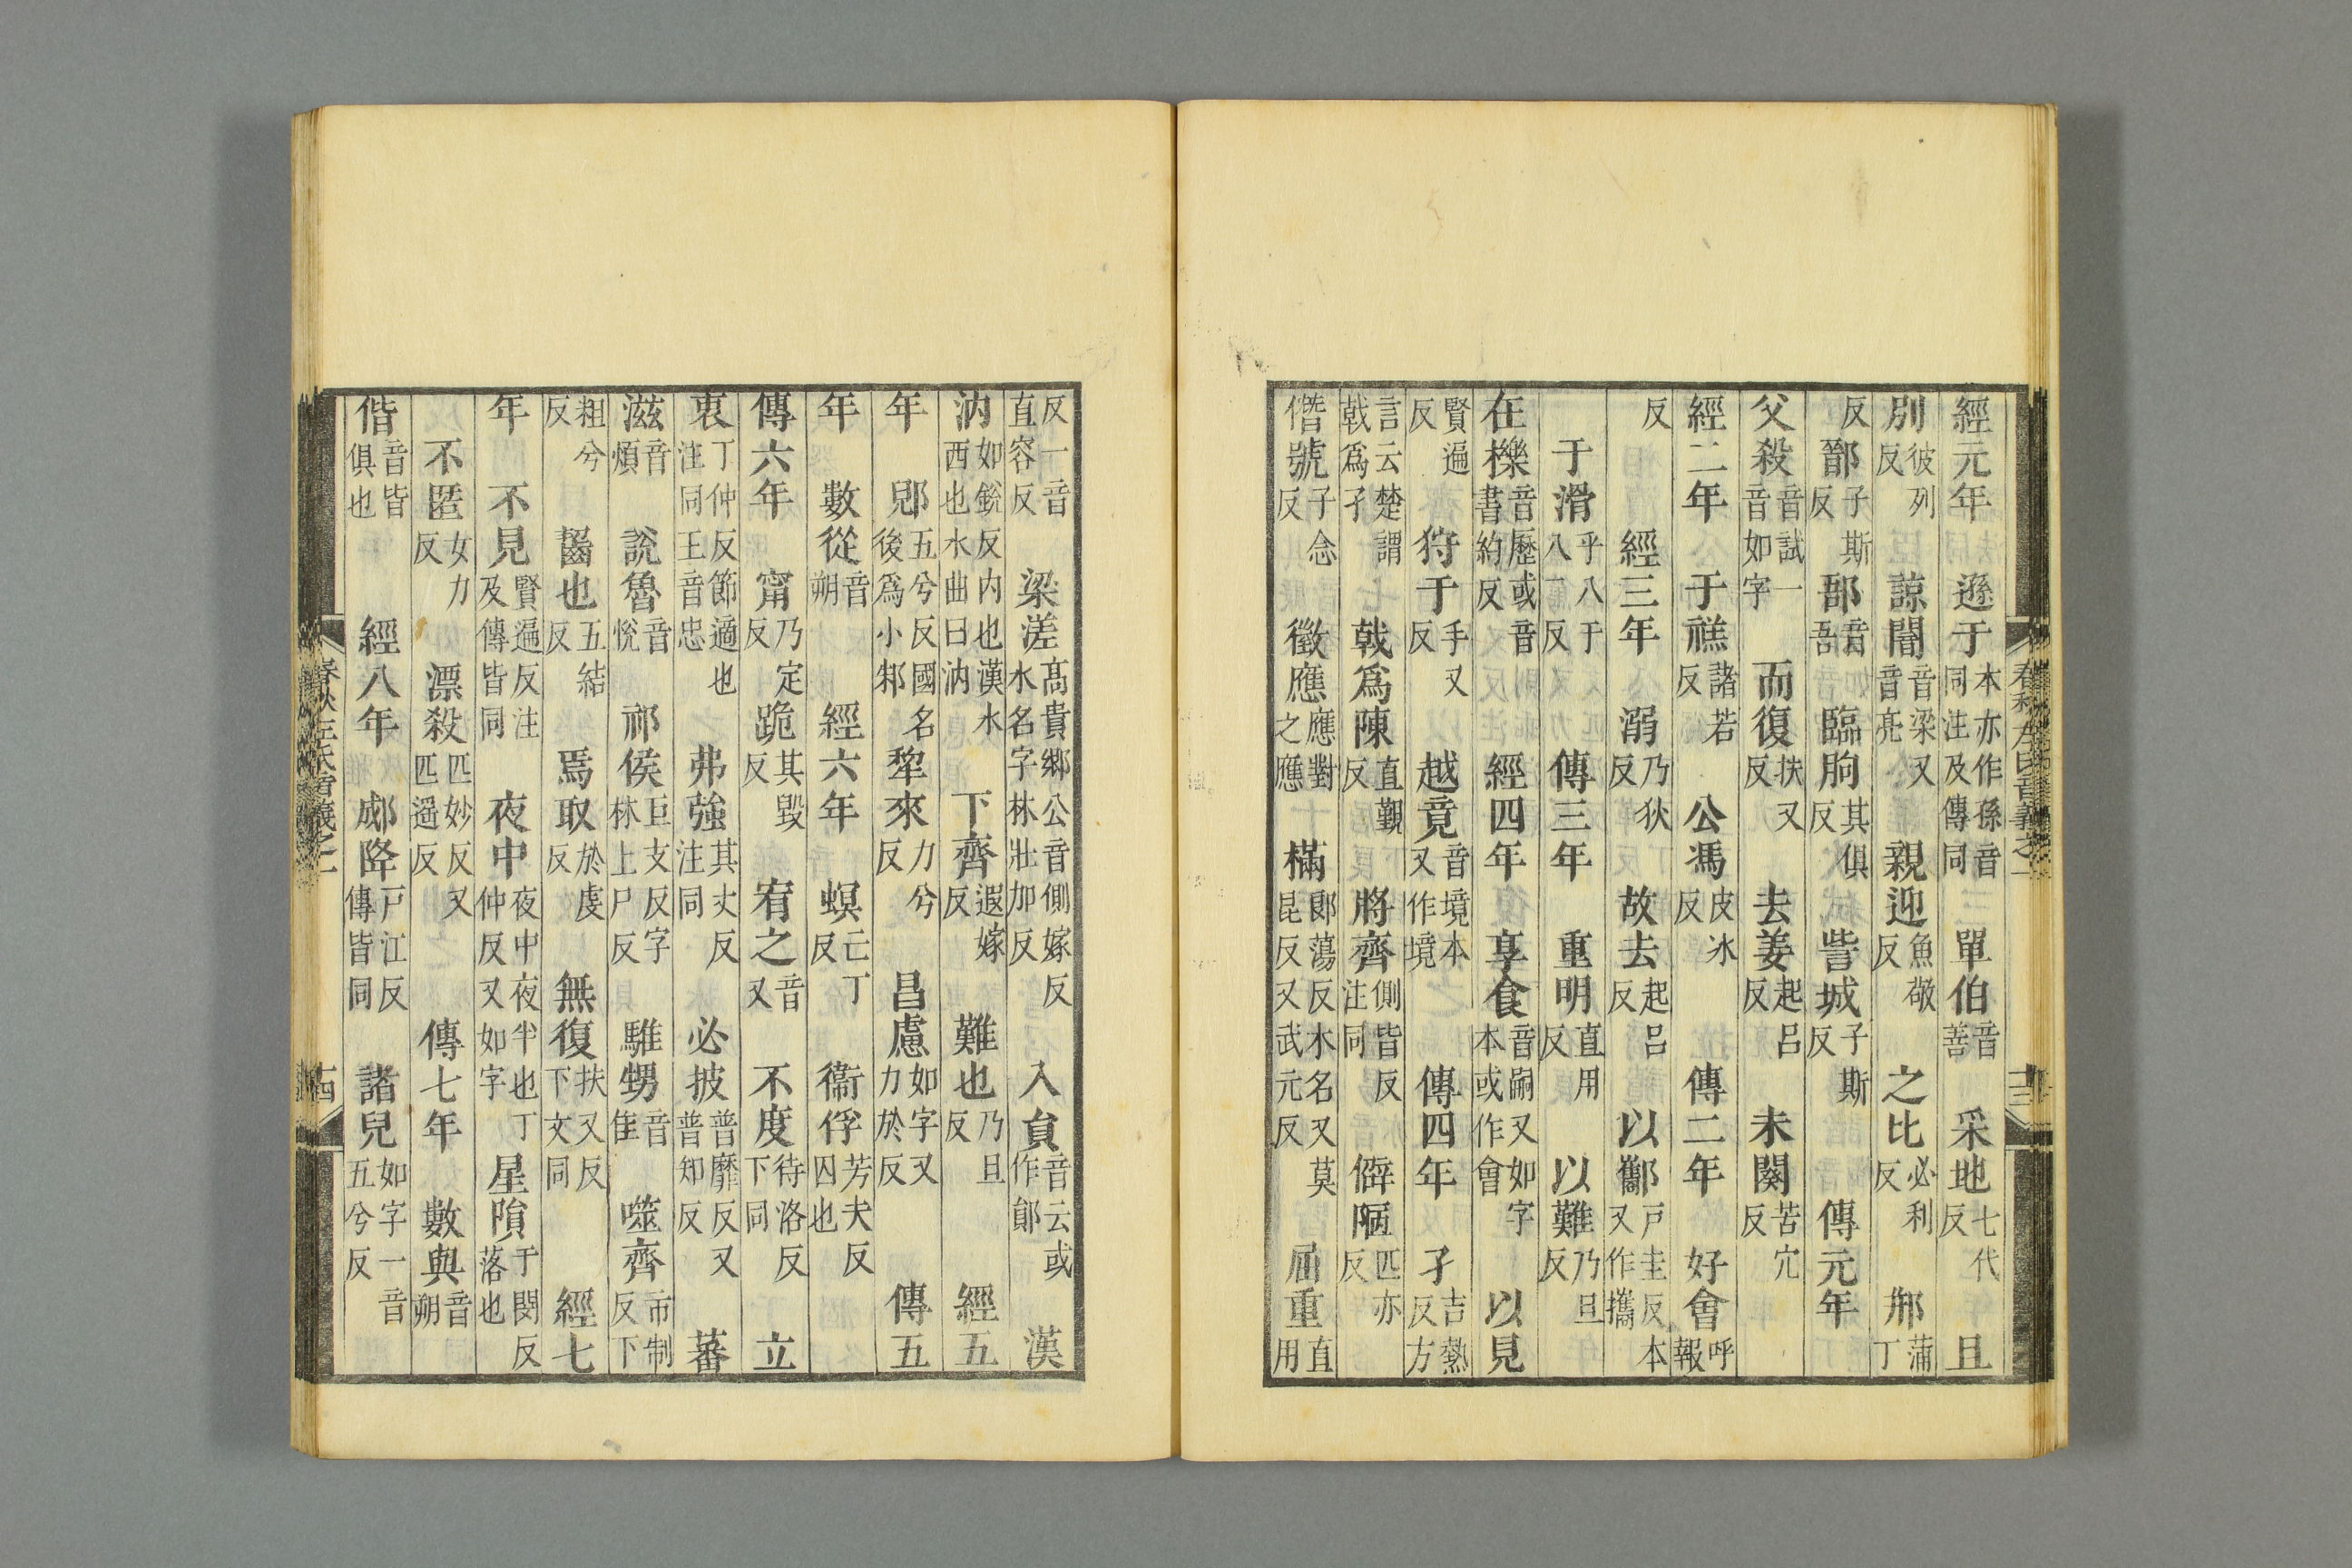 經元年 遜于本亦作孫音同注及傳同 單伯音善 采地七代反 且
別彼列反 諒闇音梁又音亮 親迎魚敬反 之比必利反 郱蒲丁
反 鄑子斯反 郚音吾 臨朐其俱反 訾城子斯反 傳元年
父殺音試一音如字 而復扶又反 去姜起呂反 未闋苦穴反
經二年 于禚諸若反 公馮皮冰反 傳二年 好會呼報
反 經三年 溺乃狄反 故去起呂反 以酅戸圭反本又作攜
于滑乎八反于八反 傳三年 重明直用反 以難乃旦反
在櫟音歷或音書約反 經四年 享食音嗣又如字本或作會 以見
賢遍反 狩于手又反 越竟音境本又作境 傳四年 孑吉熱反方
言云楚謂戟爲孑 戟爲陳直覲反 將齊側皆反注同 僻陋匹亦反
僭號子念反 徵應應對之應 樠郎蕩反木名又莫昆反又武元反 屈重直用
反一音直容反 梁溠高貴鄉公音側嫁反水名字林壯加反 入員音云或作鄖 漢
汭如銳反内也漢水西也水曲曰汭 下齊遐嫁反 難也乃旦反 經五
年 郳五兮反國名後爲小邾 犂來力兮反 昌慮如字又力於反 傳五
年 數從音朔 經六年 螟亡丁反 衞俘芳夫反囚也
傳六年 甯乃定反 跪其毀反 宥之音又 不度待洛反下同 立
衷丁仲反節適也注同王音忠 弗強其丈反注同 必披普靡反又普知反 蕃
滋音煩 說魯音悅 祁侯巨支反字林上尸反 騅甥音隹 噬齊市制反下
粗兮反 齧也五結反 焉取於虔反 無復扶又反下文同 經七
年 不見賢遍反注及傳皆同 夜中夜中夜半也丁仲反又如字 星隕于閔反落也
不匿女力反 漂殺匹妙反又匹遥反 傳七年 數與音朔
偕音皆俱也 經八年 郕降戸江反傳皆同 諸兒如字一音五兮反
春秋左氏音義之一
十四